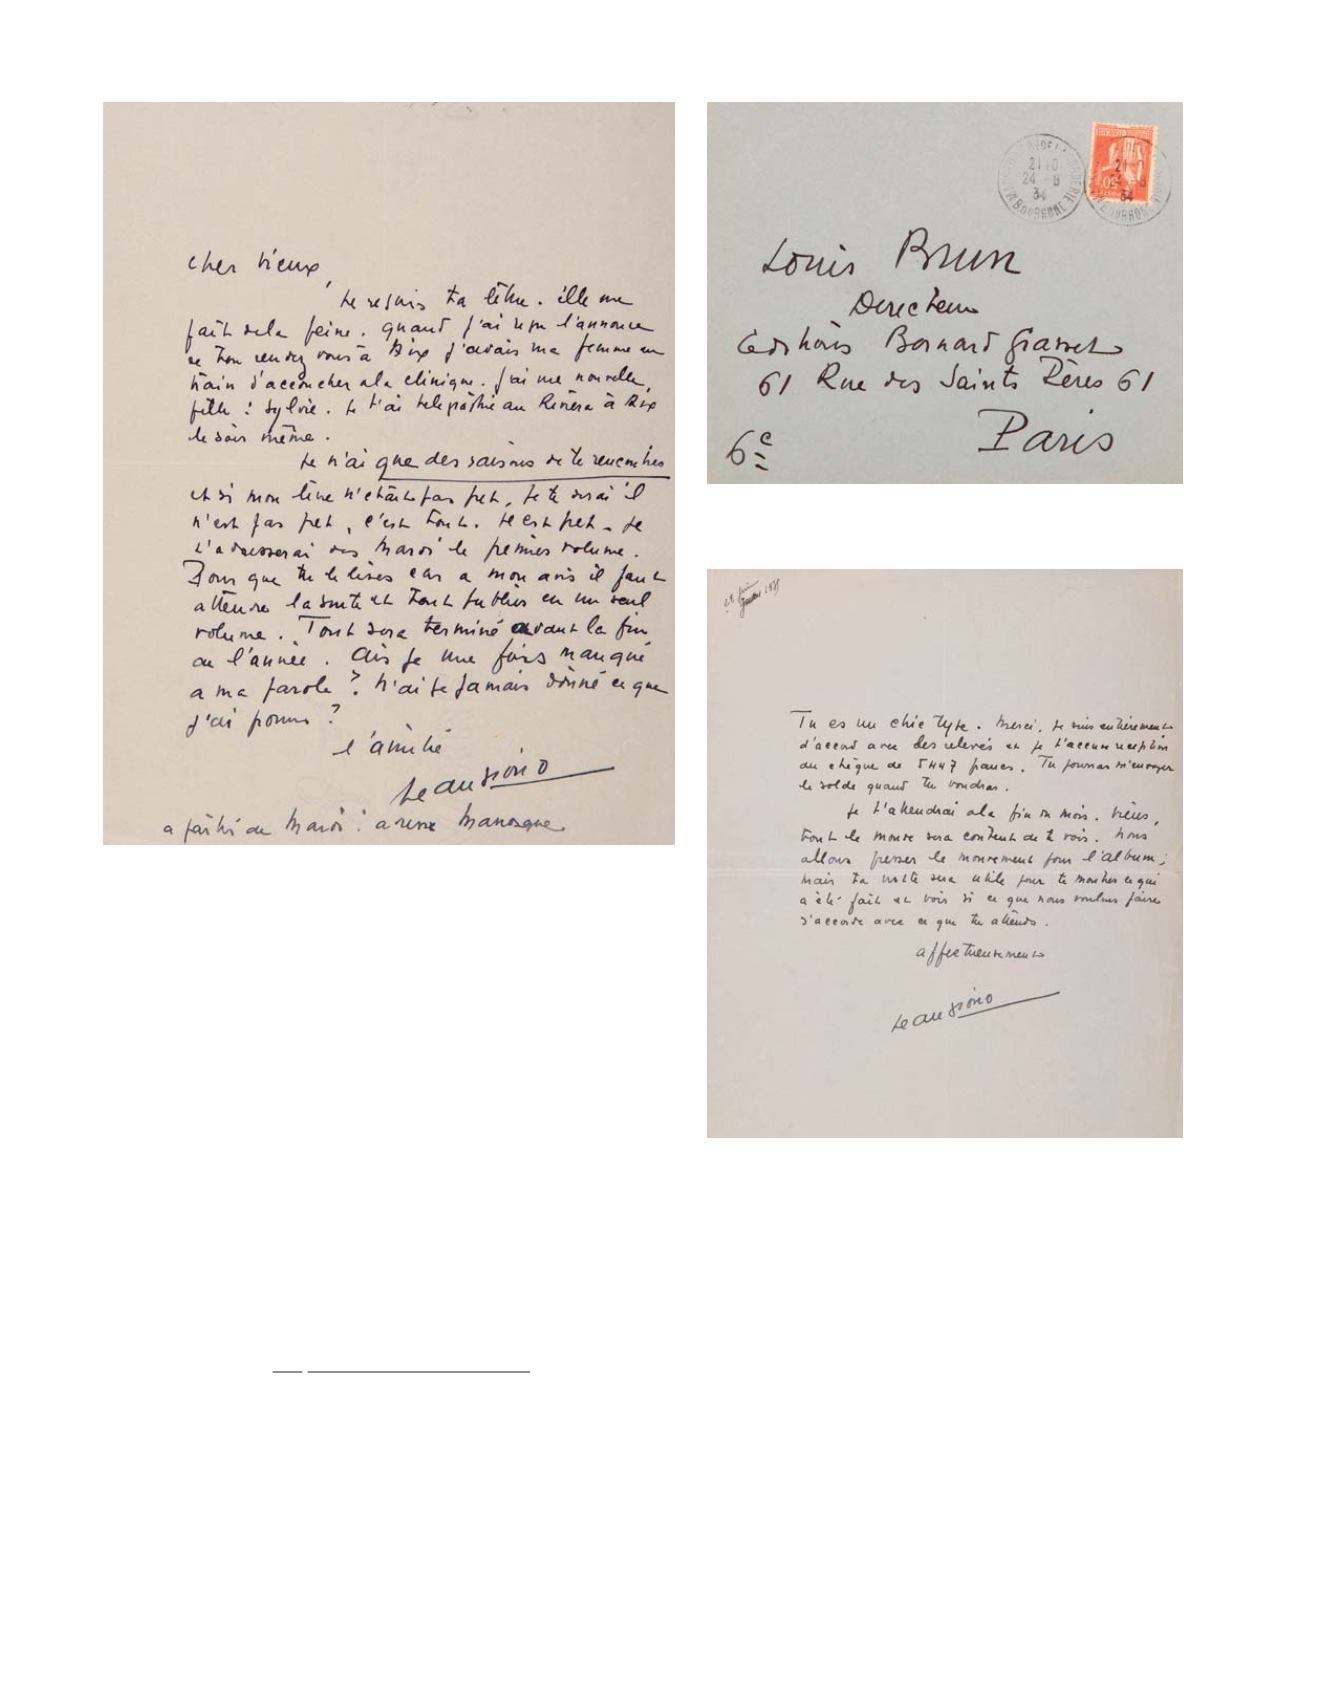 Cher vieux,
Je reçois ta lettre. Elle me
fait de la peine. Quand j'ai reçu l'annonce
de ton rendez vous à Aix j'avais ma femme en
train d'accoucher a la clinique. J'ai une nouvelle
fille : Sylvie. Je t'ai telegraphié au Riviera à Aix
le soir même.
Je n'ai que des raisons de te rencontrer
et si mon livre n'était pas pret, je te dirai il
n'est pas pret, c'est tout. Il est pret. Je
t'adresserai des Mardi le premier volume.
Pour que tu le lises car a mon avis il faut
attendre la suite et tout publier en un seul
volume. Tout sera terminé avant la fin
de l'année. Ais je une fois manqué
a ma parole ? N'ai je jamais donné ce que
j'ai promis ?
l'amitié
Jean Giono
a partir de Mardi : adresse Manosque
21 10
24 - 8
34
21 10
34
50
Louis Brun
Directeur
Editions Bernard Grasset
61 Rue des Saints Pères 61
Paris
6e
1935
Tu es un chic type. Merci. Je suis entièrement
d'accord avec les relevés et je t'accuse reception
du chèque de 5447 francs. Tu pourras m'envoyer
le solde quand tu voudras.
Je t'attendrai a la fin du mois. Viens,
tout le monde sera content de te voir. Nous
allons presser le mouvement pour l'album ;
mais ta visite sera utile pour te montrer ce qui
a été fait et voir si ce que nous voulons faire
s'accorde avec ce que tu attends.
affectueusement
Jean Giono